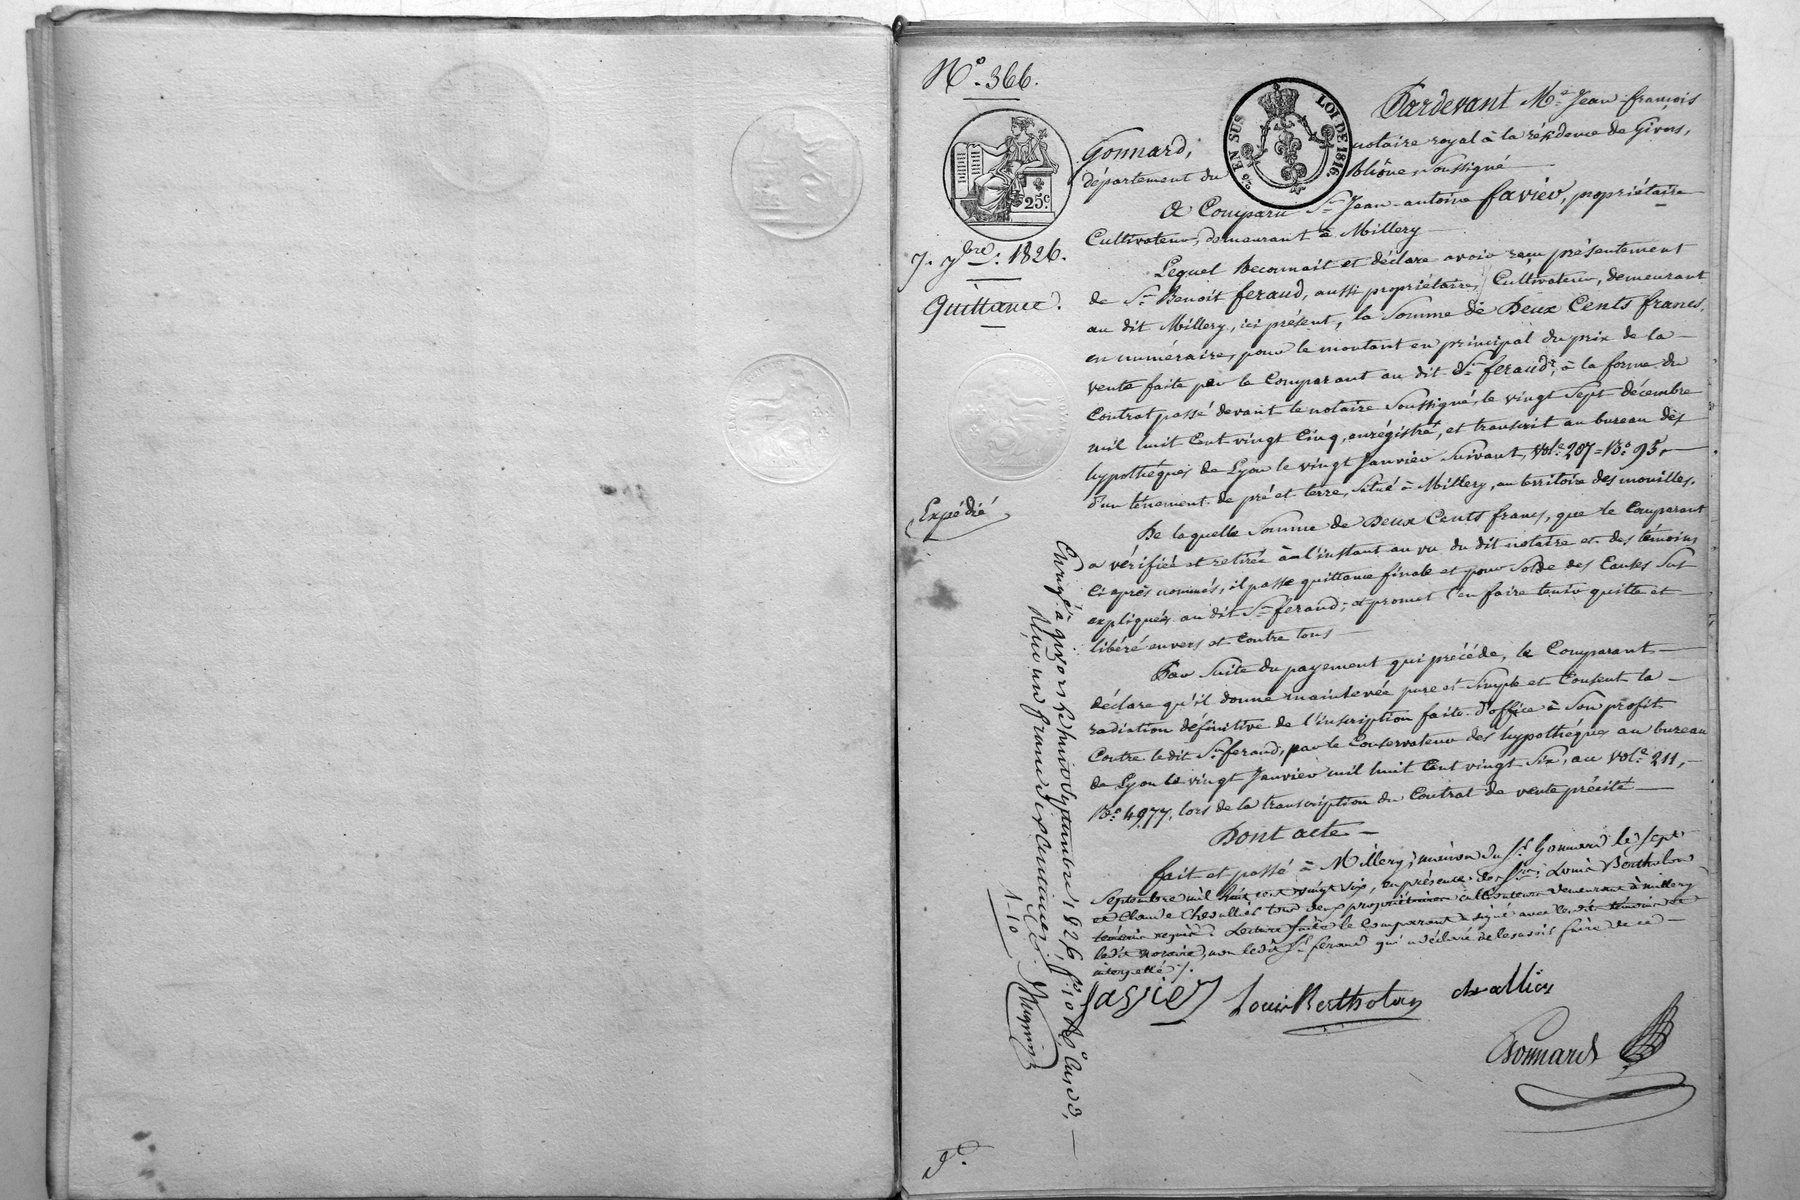 N.° 366.
25.c
7. 7bre. 1826.
Quittance.
Expédié
% EN SUS LOI DE 1816.
Pardevant Me. Jean-françois
Gonnard, notaire royal à la résidence de Givors,
département du Rhône, Soussigné
A Comparu Sr. Jean-antoine favier, propriétaire
Cultivateur, demeurant à Millery
Lequel Reconnait et déclare avoir reçu présentement
de Sr. Benoit feraud, aussi propriétaire, Cultivateur, demeurant
au dit Millery, ici présent, la Somme de Deux Cents francs,
en numéraire, pour le montant en principal du prix de la
vente faite par le Comparant au dit Sr. feraud, à la forme du
Contrat passé devant le notaire Soussigné, le vingt Sept décembre
mil huit Cent vingt Cinq, enrégistré, et transcrit au bureau des
hypothèques de Lyon le vingt Janvier Suivant, vol.e 207 = N.o 95,
d'un tènement de pré et terre, Situé à Millery, au territoire des mouilles.
De laquelle Somme de Deux Cents francs, que le Comparant
a vérifiée et retirée à l'instant au vu du dit notaire et des témoins
Ci après nommés, il passe quittance finale et pour Solde des Causes Sus
expliquées au dit Sr. feraud; et promet l'en faire tenir quitte et
libéré envers et Contre tous
Par Suite du payement qui précède, le Comparant
déclare qu'il donne mainlevée pure et Simple et Consent la
radiation définitive de l'inscription faite d'office à Son profit
Contre le dit Sr. feraud, par le Conservateur des hypothèques au bureau
de Lyon le vingt Janvier mil huit Cent vingt Six, au vol.e 211,
N.o 4977, lors de la transcription du Contrat de vente précité
Dont acte
fait et passé à Millery, maison du Sr. Gonnard le sept
Septembre mil huit cent vingt six, en présence de Srs. Louis Bertholon
et Claude Chevallier tous deux propriétaires cultivateurs demeurant à millery
témoins requis. Lecture faite le Comparant a signé avec lesdits témoins et
ledit notaire, non ledit Sr. feraud qui a déclaré ne le savoir faire de ce
interpellé
favier Louis Bertholon chevallier
Gonnard
Enregé. à givors le huit Septembre 1826 f.o 10 R.o
Reçu un franc dix centimes.
1-10